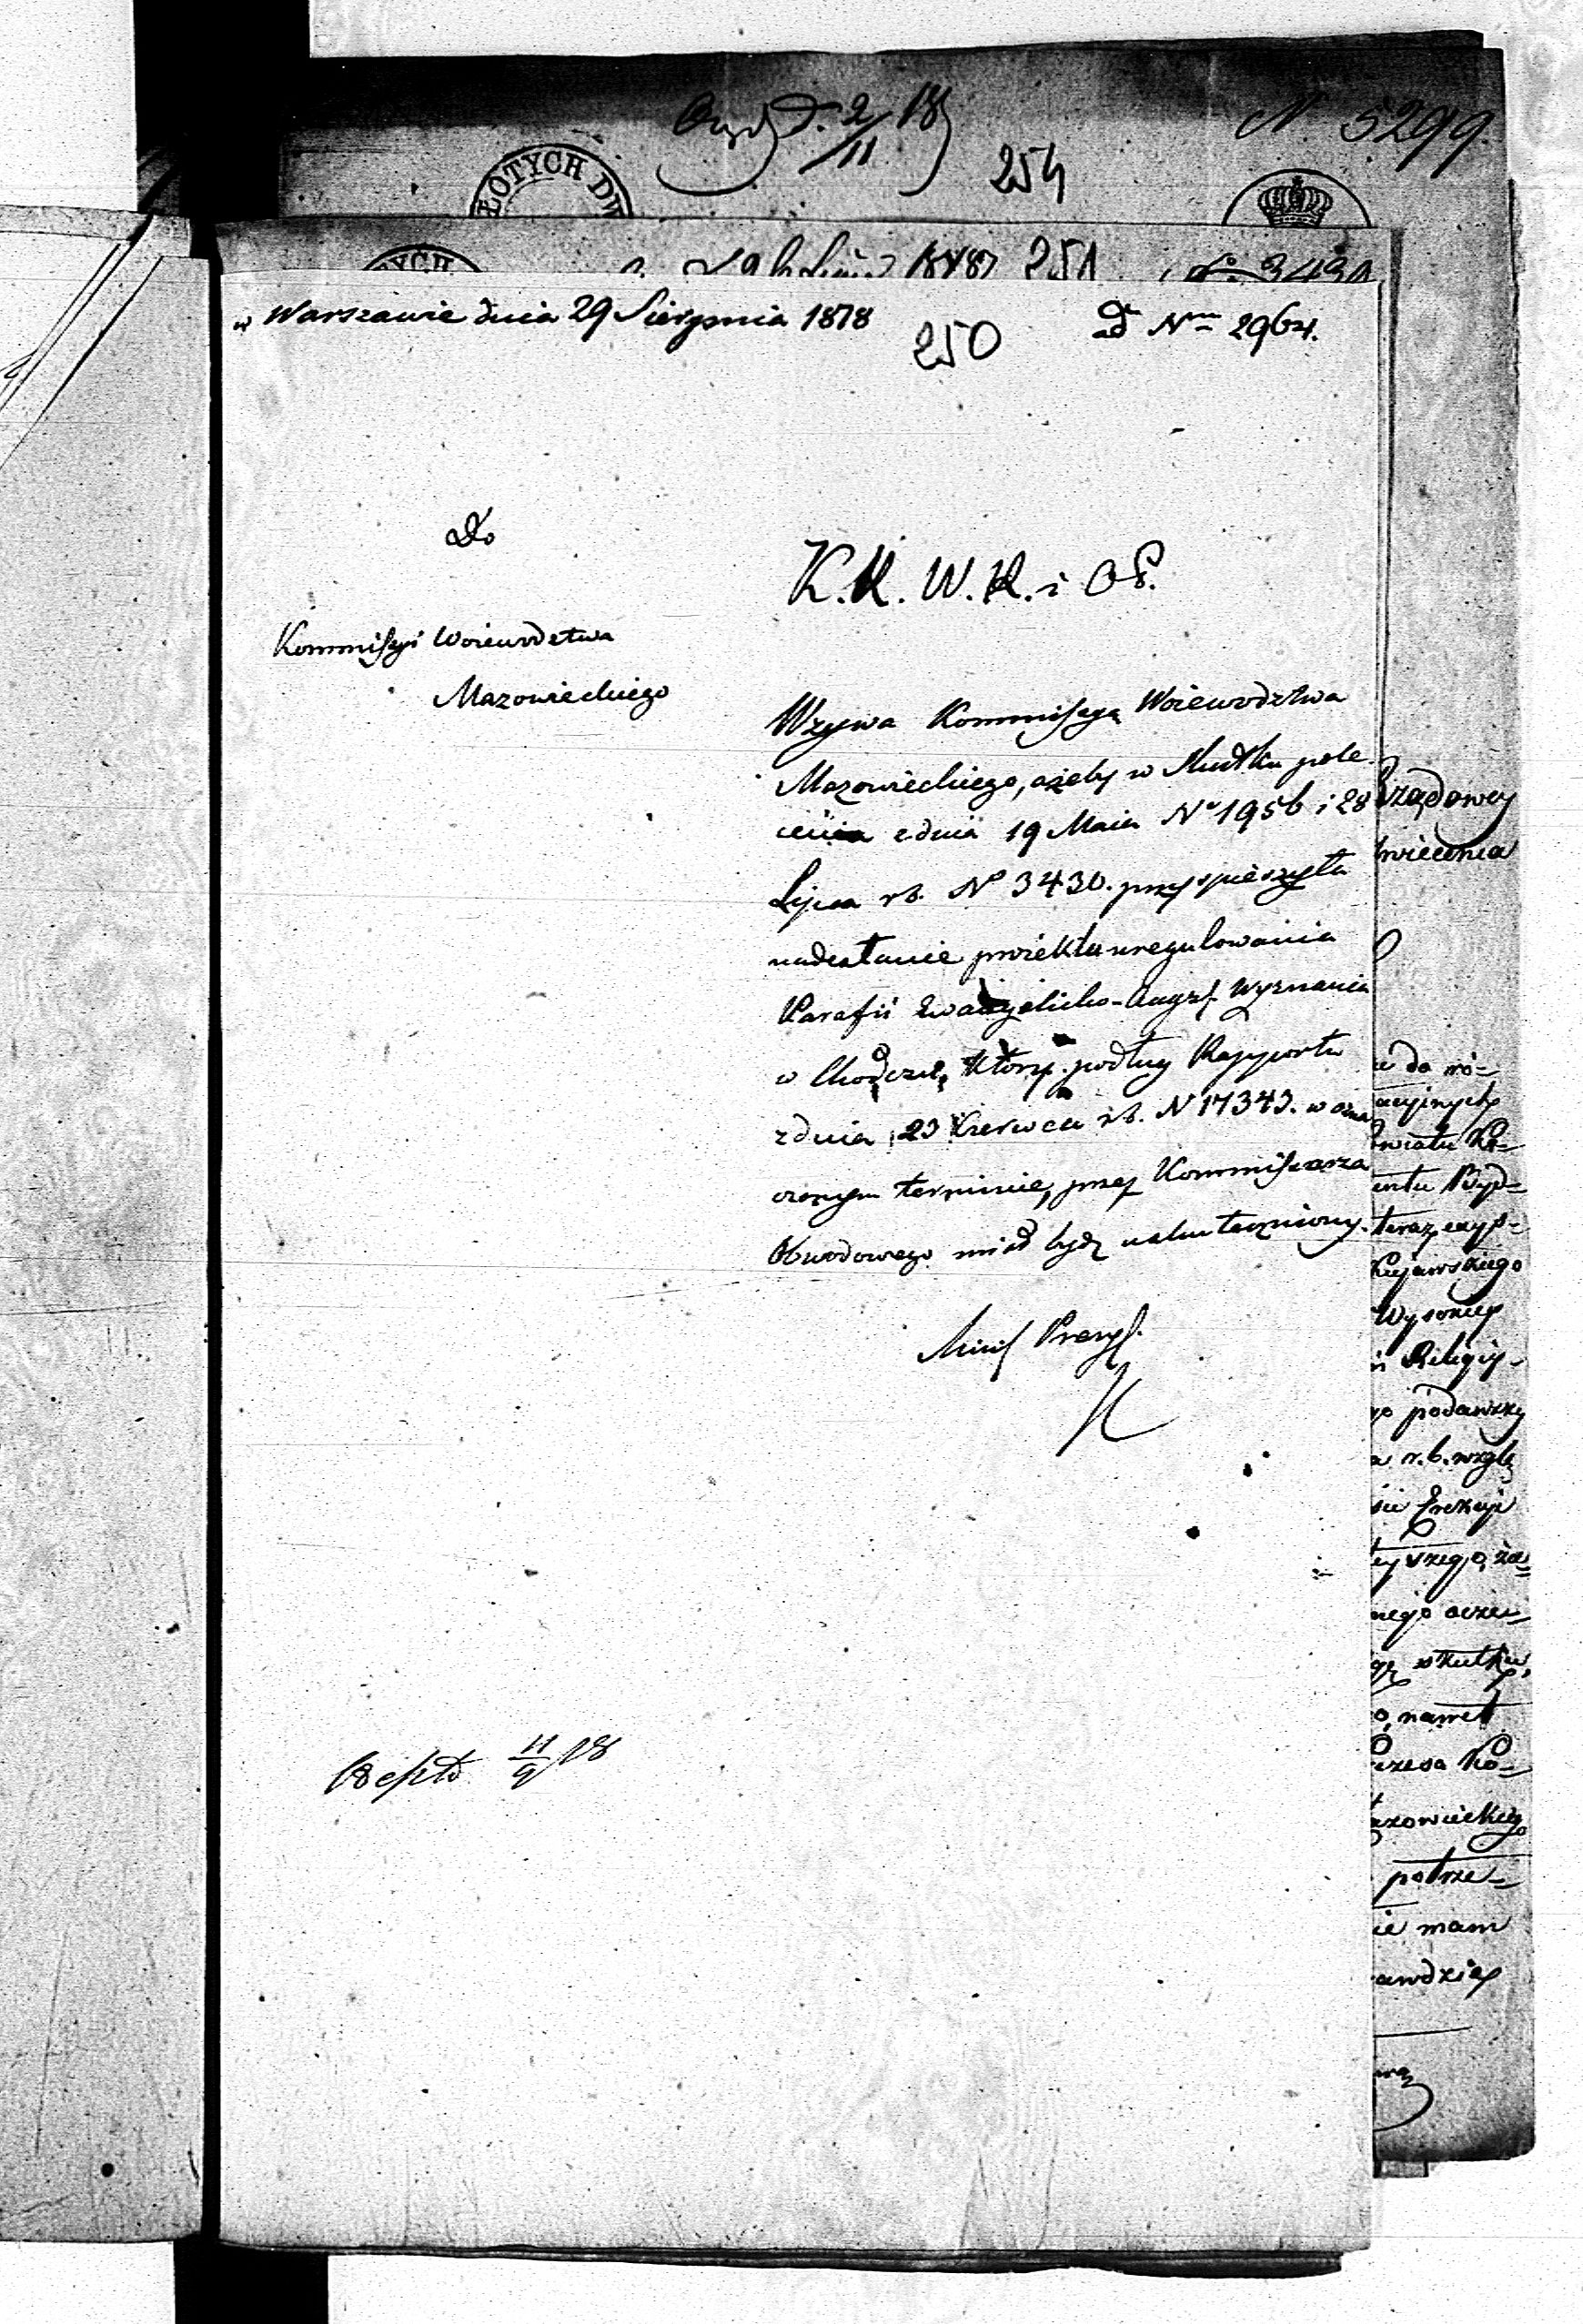 N. 5299.
254
ŁOTYCH DW
YCH
251
No 3430
w Warszawie dnia 29 Sierpnia 1818
250
Do Nru 2964.
Do
Kommissyi Woiewodztwa
Mazowieckiego
K.R. W.R. i O.P.
Wzywa Kommissyą Woiewodztwa
Mazowieckiego, ażeby w skutku pole
cenia z dnia 19 Maia No 1956 i 28
Lipca r.b. No 3430. przyspieszyła
nadesłanie proiektu uregulowania
Parafii Ewangelicko-Augsb. Wyznania
w Chodczu, który podług Rapportu
z dnia 23 Czerwca r.b. N 17343. w ozna
czonym terminie, przez Kommissarza
Obwodowego miał bydź uskuteczniony.
Minis Prezyd.
11/9 18
rządowey
wiecenia
do wo-
acyinych
Powiatu Ko-
entu Wyd-
teraz, exyp-
Kujawskiego
Wysokiey
Religiy-
podawszy
r.b. wzglę
Erekcyi
nego oczeu
skutku,
nawet
rezesa Ko-
azowieckiego
potrze-
ie mam
awdziey